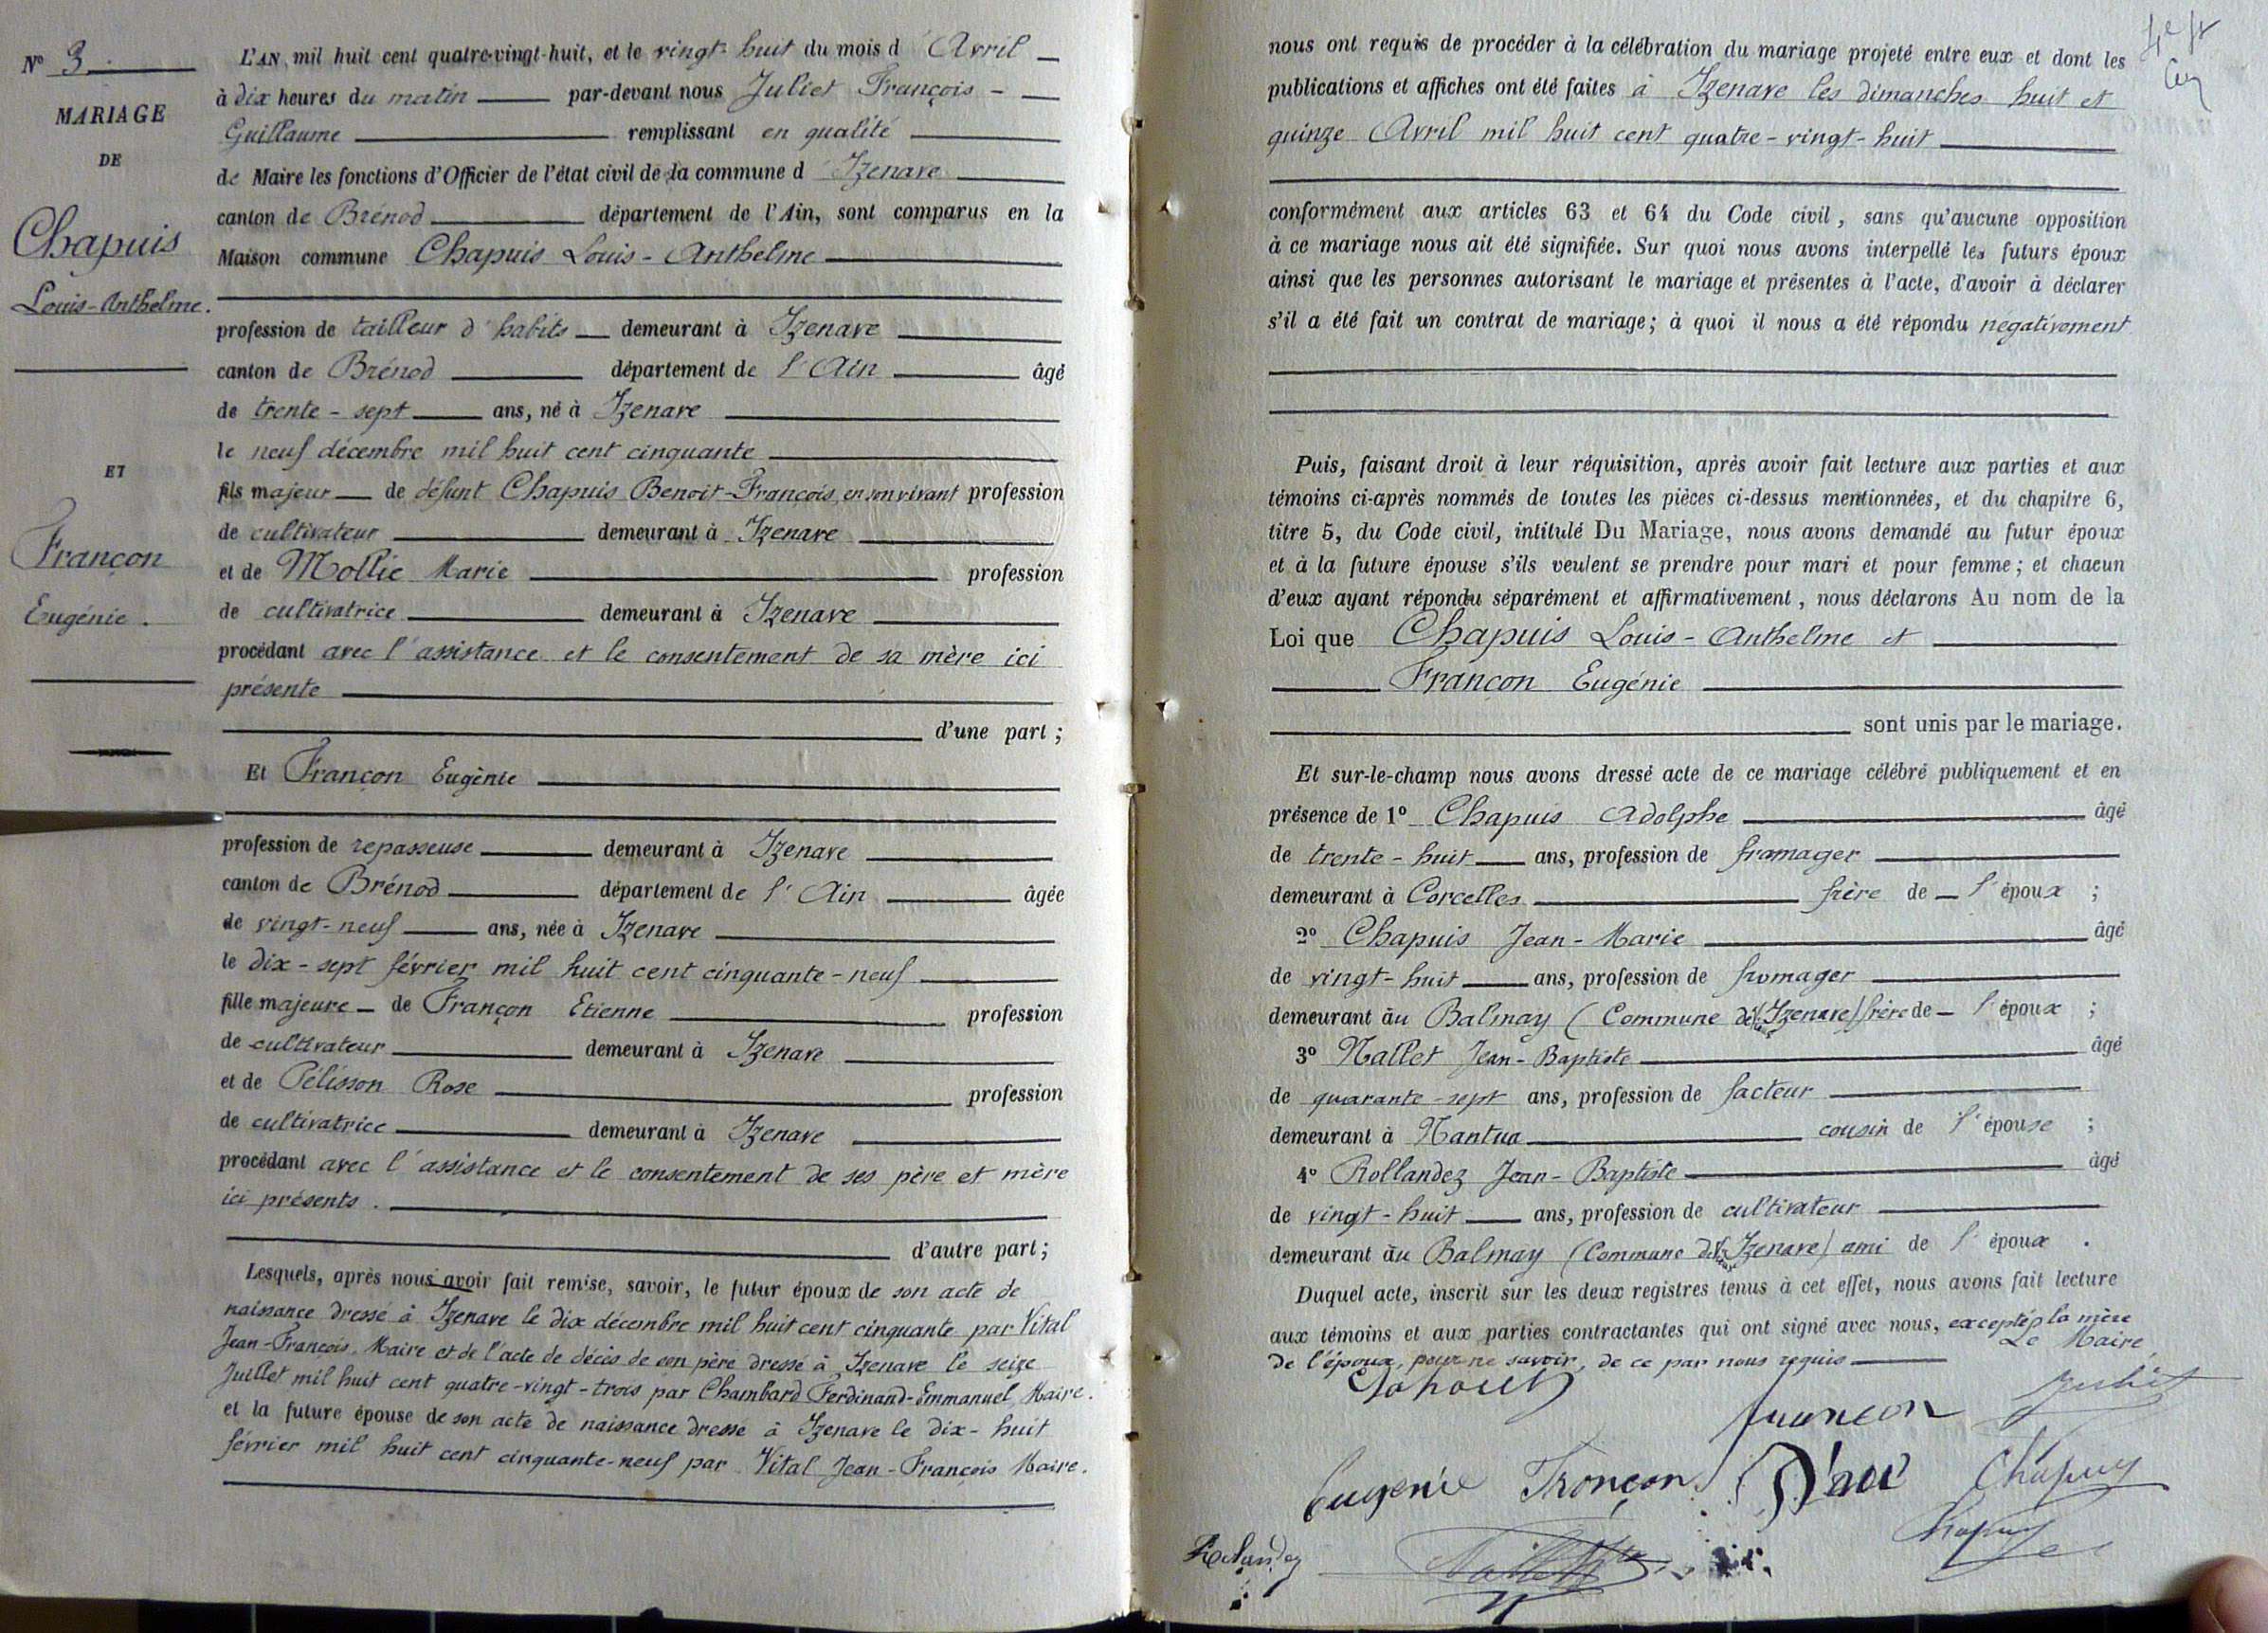 N° 3
MARIAGE
DE
Chapuis
Louis-Anthelme.
ET
Françon
Eugénie.
L'AN mil huit cent quatre-vingt-huit, et le vingt-huit du mois d'Avril
à dix heures du matin par-devant nous Juliet François-
Guillaume remplissant en qualité
de Maire les fonctions d'Officier de l'état civil de la commune d'Izenave
canton de Brénod département de l'Ain, sont comparus en la
Maison commune Chapuis Louis-Anthelme
profession de tailleur d'habits demeurant à Izenave
canton de Brénod département de l'Ain âgé
de trente-sept ans, né à Izenave
le neuf décembre mil huit cent cinquante
fils majeur de défunt Chapuis Benoit-François, en son vivant profession
de cultivateur demeurant à Izenave
et de Mollie Marie profession
de cultivatrice demeurant à Izenave
procédant avec l'assistance et le consentement de sa mère ici
présente
d'une part;
Et Françon Eugénie
profession de repasseuse demeurant à Izenave
canton de Brénod département de l'Ain âgée
de vingt-neuf ans, née à Izenave
le dix-sept février mil huit cent cinquante-neuf
fille majeure de Françon Etienne profession
de cultivateur demeurant à Izenave
et de Pélisson Rose profession
de cultivatrice demeurant à Izenave
procédant avec l'assistance et le consentement de ses père et mère
ici présents.
d'autre part;
Lesquels, après nous avoir fait remise, savoir, le futur époux de son acte de
naissance dressé à Izenave le dix décembre mil huit cent cinquante par Vital
Jean-François, Maire et de l'acte de décès de son père dressé à Izenave le seize
Juillet mil huit cent quatre-vingt-trois par Chambard Ferdinand-Emmanuel, Maire.
et la future épouse de son acte de naissance dressé à Izenave le dix-huit
février mil huit cent cinquante-neuf par Vital Jean-François Maire.
nous ont requis de procéder à la célébration du mariage projeté entre eux et dont les
publications et affiches ont été faites à Izenave les dimanches huit et
quinze Avril mil huit cent quatre-vingt-huit
conformément aux articles 63 et 64 du Code civil, sans qu'aucune opposition
à ce mariage nous ait été signifiée. Sur quoi nous avons interpellé les futurs époux
ainsi que les personnes autorisant le mariage et présentes à l'acte, d'avoir à déclarer
s'il a été fait un contrat de mariage; à quoi il nous a été répondu négativement
Puis, faisant droit à leur réquisition, après avoir fait lecture aux parties et aux
témoins ci-après nommés de toutes les pièces ci-dessus mentionnées, et du chapitre 6,
titre 5, du Code civil, intitulé Du Mariage, nous avons demandé au futur époux
et à la future épouse s'ils veulent se prendre pour mari et pour femme; et chacun
d'eux ayant répondu séparément et affirmativement, nous déclarons Au nom de la
Loi que Chapuis Louis-Anthelme et
Françon Eugénie
sont unis par le mariage.
Et sur-le-champ nous avons dressé acte de ce mariage célébré publiquement et en
présence de 1° Chapuis Adolphe âgé
de trente-huit ans, profession de framager
demeurant à Corcelles frère de l'époux;
2° Chapuis Jean-Marie âgé
de vingt-huit ans, profession de fromager
demeurant au Balmay (Commune d'Izenave) frère de l'époux;
3° Nallet Jean-Baptiste âgé
de quarante-sept ans, profession de facteur
demeurant à Nantua cousin de l'épouse;
4° Rollandez Jean-Baptiste âgé
de vingt-huit ans, profession de cultivateur
demeurant au Balmay (Commune d'Izenave) ami de l'époux.
Duquel acte, inscrit sur les deux registres tenus à cet effet, nous avons fait lecture
aux témoins et aux parties contractantes qui ont signé avec nous, excepté la mère
de l'époux, pour ne savoir, de ce par nous requis
Le Maire,
Juliet
françon
Eugénie Françon
Chapuy
Chapuy
Rolandez
Nallet